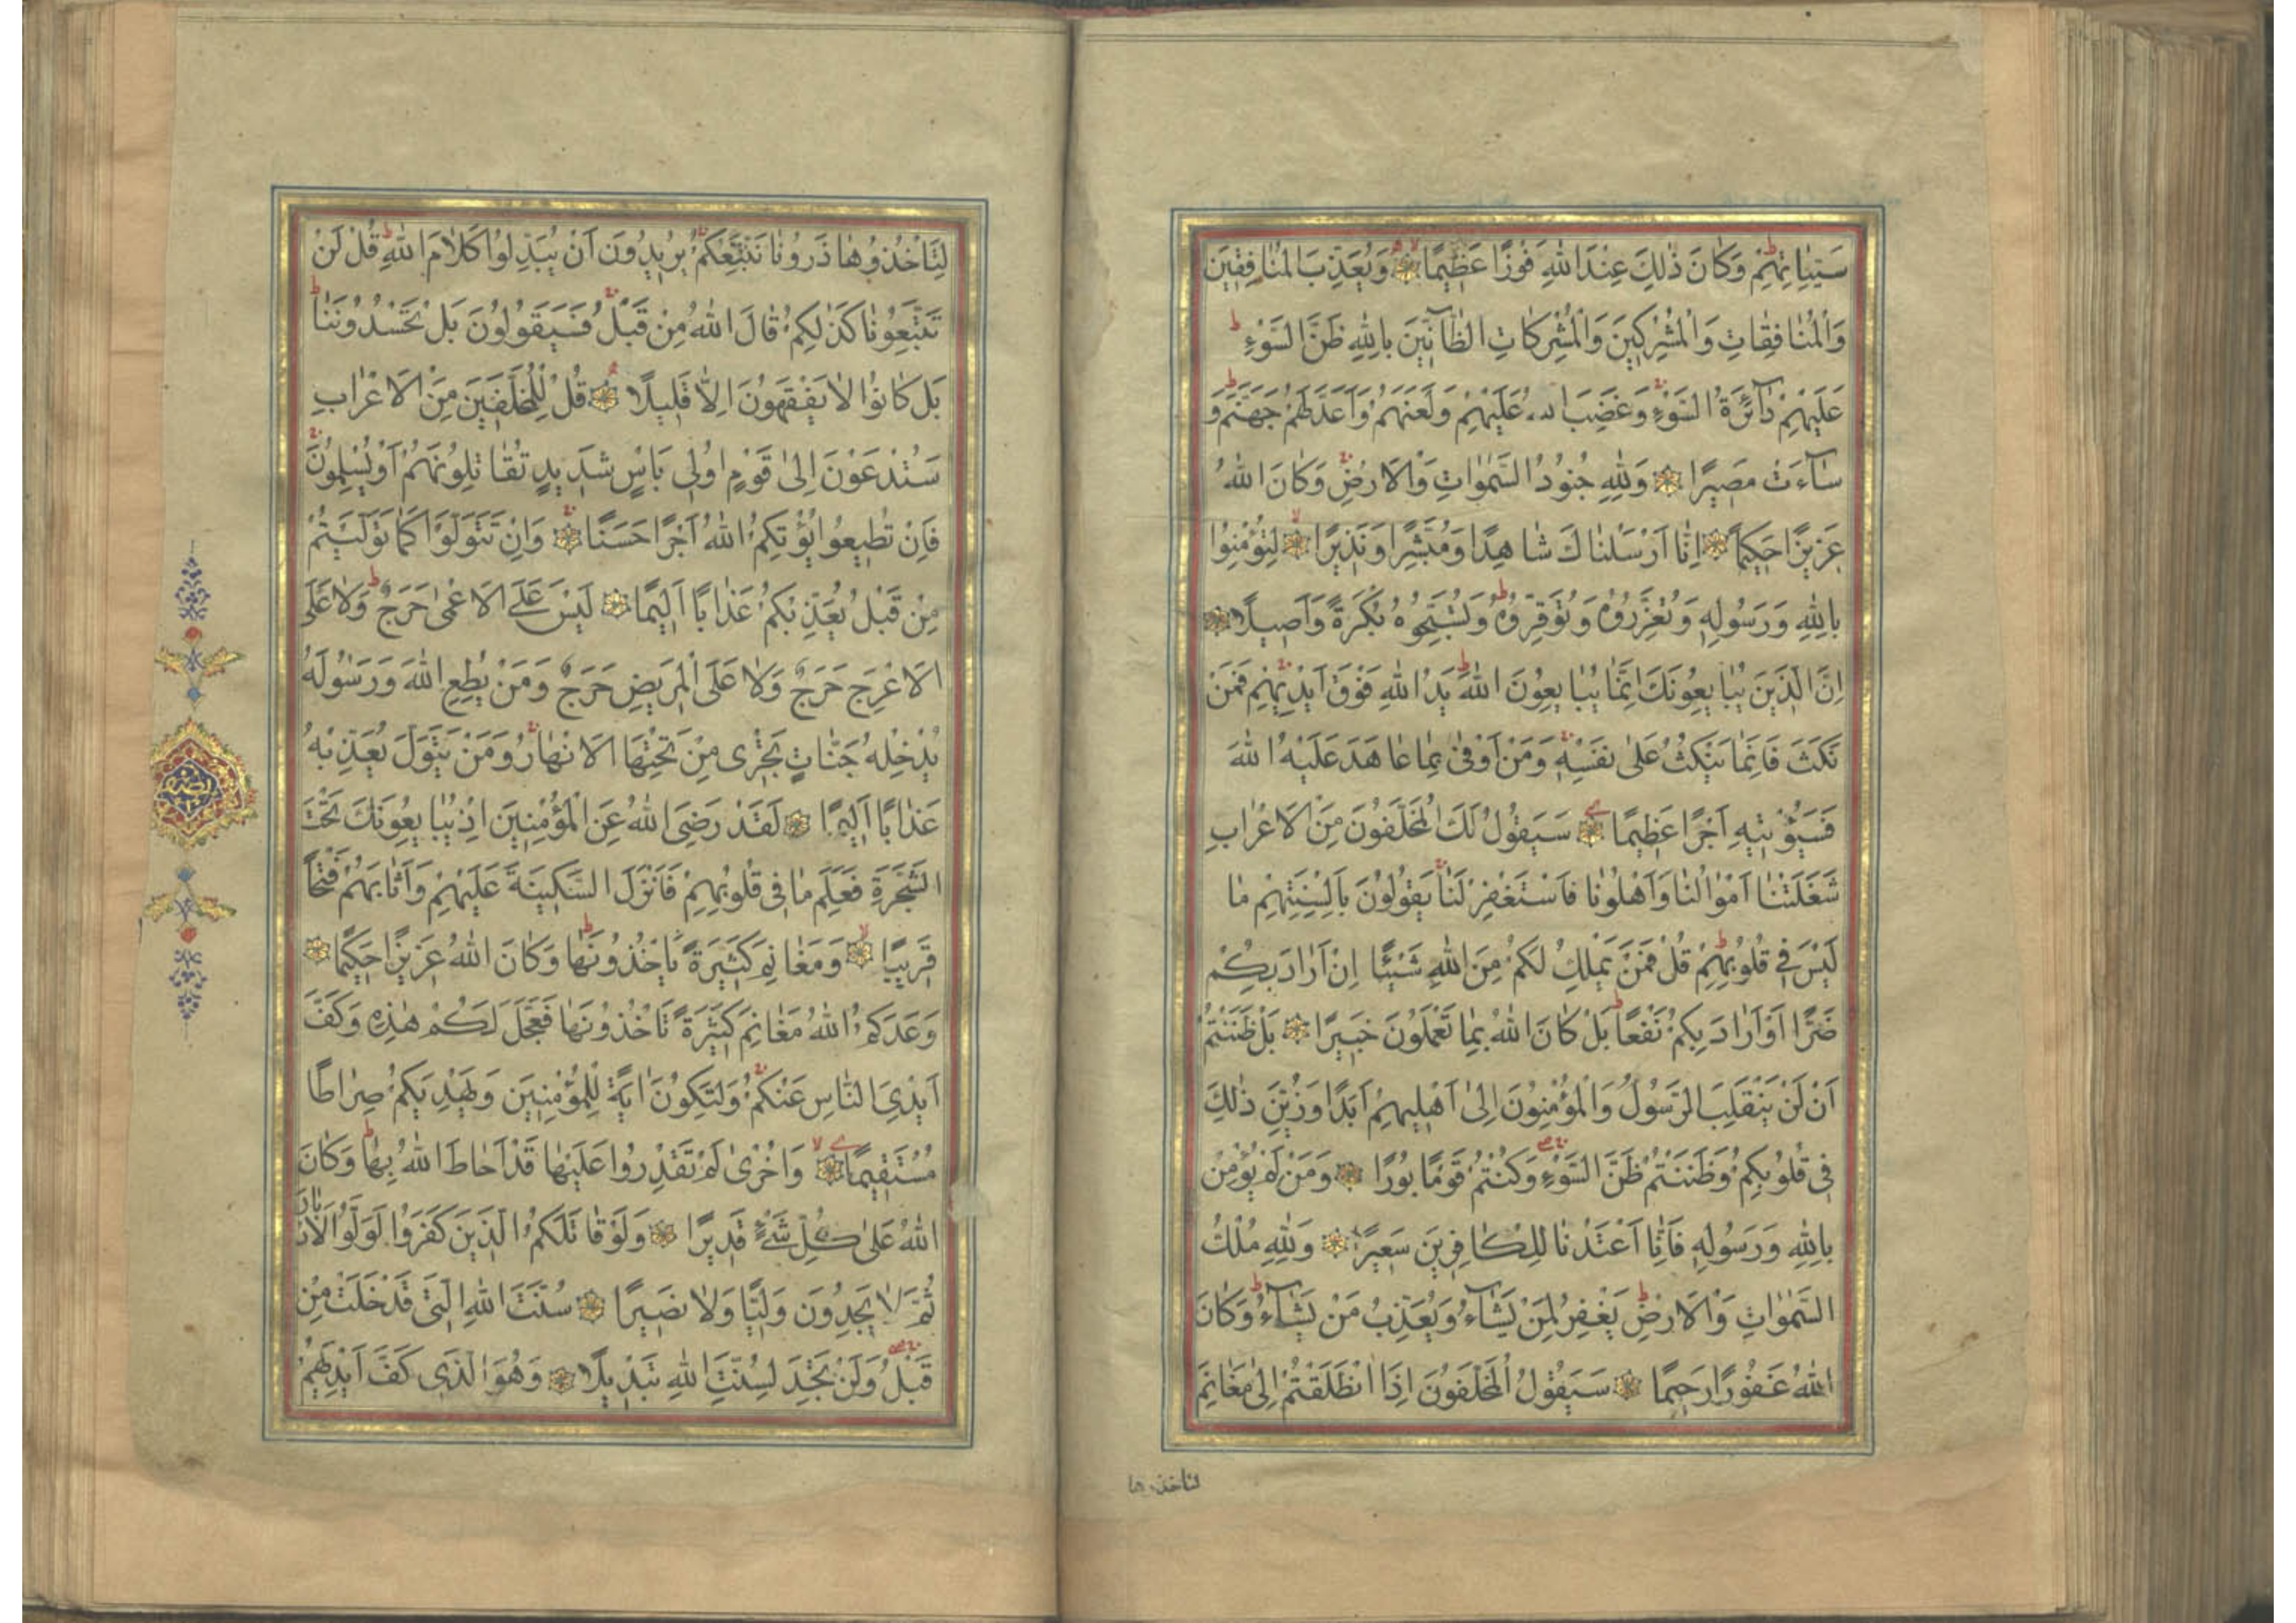 سَيِّئَاتِهِمْ وَكَانَ ذٰلِكَ عِنْدَ اللهِ فَوْزًا عَظِيمًا وَيُعَذِّبَ الْمُنَافِقِينَ
وَالْمُنَافِقَاتِ وَالْمُشْرِكِينَ وَالْمُشْرِكَاتِ الظَّآنِّينَ بِاللهِ ظَنَّ السَّوْءِ
عَلَيْهِمْ دَآئِرَةُ السَّوْءِ وَغَضِبَ اللهُ عَلَيْهِمْ وَلَعَنَهُمْ وَاَعَدَّ لَهُمْ جَهَنَّمَ وَ
سَآءَتْ مَصِيرًا وَلِلّٰهِ جُنُودُ السَّمٰوَاتِ وَالْاَرْضِ وَكَانَ اللهُ
عَزِيزًا حَكِيمًا اِنَّا اَرْسَلْنَاكَ شَاهِدًا وَمُبَشِّرًا وَنَذِيرًا لِتُؤْمِنُوا
بِاللهِ وَرَسُولِهِ وَتُعَزِّرُوهُ وَتُوَقِّرُوهُ وَتُسَبِّحُوهُ بُكْرَةً وَاَصِيلًا
اِنَّ الَّذِينَ يُبَايِعُونَكَ اِنَّمَا يُبَايِعُونَ اللهَ يَدُ اللهِ فَوْقَ اَيْدِيهِمْ فَمَنْ
نَكَثَ فَاِنَّمَا يَنْكُثُ عَلٰى نَفْسِهِ وَمَنْ اَوْفٰى بِمَا عَاهَدَ عَلَيْهُ اللهَ
فَسَيُؤْتِيهِ اَجْرًا عَظِيمًا سَيَقُولُ لَكَ الْمُخَلَّفُونَ مِنَ الْاَعْرَابِ
شَغَلَتْنَا اَمْوَالُنَا وَاَهْلُونَا فَاسْتَغْفِرْ لَنَا يَقُولُونَ بِاَلْسِنَتِهِمْ مَا
لَيْسَ فِي قُلُوبِهِمْ قُلْ فَمَنْ يَمْلِكُ لَكُمْ مِنَ اللهِ شَيْئًا اِنْ اَرَادَ بِكُمْ
ضَرًّا اَوْ اَرَادَ بِكُمْ نَفْعًا بَلْ كَانَ اللهُ بِمَا تَعْمَلُونَ خَبِيرًا بَلْ ظَنَنْتُمْ
اَنْ لَنْ يَنْقَلِبَ الرَّسُولُ وَالْمُؤْمِنُونَ اِلٰى اَهْلِيهِمْ اَبَدًا وَزُيِّنَ ذٰلِكَ
فِى قُلُوبِكُمْ وَظَنَنْتُمْ ظَنَّ السَّوْءِ وَكُنْتُمْ قَوْمًا بُورًا وَمَنْ لَمْ يُؤْمِنْ
بِاللهِ وَرَسُولِهِ فَاِنَّا اَعْتَدْنَا لِلْكَافِرِينَ سَعِيرًا وَلِلّٰهِ مُلْكُ
السَّمٰوَاتِ وَالْاَرْضِ يَغْفِرُ لِمَنْ يَشَآءُ وَيُعَذِّبُ مَنْ يَشَآءُ وَكَانَ
اللهُ غَفُورًا رَحِيمًا سَيَقُولُ الْمُخَلَّفُونَ اِذَا انْطَلَقْتُمْ اِلٰى مَغَانِمَ
لتاخذوها
لِتَاْخُذُوهَا ذَرُونَا نَتَّبِعْكُمْ يُرِيدُونَ اَنْ يُبَدِّلُوا كَلَامَ اللهِ قُلْ لَنْ
تَتَّبِعُونَا كَذٰلِكُمْ قَالَ اللهُ مِنْ قَبْلُ فَسَيَقُولُونَ بَلْ تَحْسُدُونَنَا
بَلْ كَانُوا لَا يَفْقَهُونَ اِلَّا قَلِيلًا قُلْ لِلْمُخَلَّفِينَ مِنَ الْاَعْرَابِ
سَتُدْعَوْنَ اِلٰى قَوْمٍ اُولِى بَاْسٍ شَدِيدٍ تُقَاتِلُونَهُمْ اَوْ يُسْلِمُونَ
فَاِنْ تُطِيعُوا يُؤْتِكُمُ اللهُ اَجْرًا حَسَنًا وَاِنْ تَتَوَلَّوْا كَمَا تَوَلَّيْتُمْ
مِنْ قَبْلُ يُعَذِّبْكُمْ عَذَابًا اَلِيمًا لَيْسَ عَلَى الْاَعْمٰى حَرَجٌ وَلَا عَلَى
الْاَعْرَجِ حَرَجٌ وَلَا عَلَى الْمَرِيضِ حَرَجٌ وَمَنْ يُطِعِ اللهَ وَرَسُولَهُ
يُدْخِلْهُ جَنَّاتٍ تَجْرِى مِنْ تَحْتِهَا الْاَنْهَارُ وَمَنْ يَتَوَلَّ يُعَذِّبْهُ
عَذَابًا اَلِيمًا لَقَدْ رَضِىَ اللهُ عَنِ الْمُؤْمِنِينَ اِذْ يُبَايِعُونَكَ تَحْتَ
الشَّجَرَةِ فَعَلِمَ مَا فِى قُلُوبِهِمْ فَاَنْزَلَ السَّكِينَةَ عَلَيْهِمْ وَاَثَابَهُمْ فَتْحًا
قَرِيبًا وَمَغَانِمَ كَثِيرَةً يَاْخُذُونَهَا وَكَانَ اللهُ عَزِيزًا حَكِيمًا
وَعَدَكُمُ اللهُ مَغَانِمَ كَثِيرَةً تَاْخُذُونَهَا فَعَجَّلَ لَكُمْ هٰذِهِ وَكَفَّ
اَيْدِىَ النَّاسِ عَنْكُمْ وَلِتَكُونَ اٰيَةً لِلْمُؤْمِنِينَ وَيَهْدِيَكُمْ صِرَاطًا
مُسْتَقِيمًا وَاُخْرٰى لَمْ تَقْدِرُوا عَلَيْهَا قَدْ اَحَاطَ اللهُ بِهَا وَكَانَ
اللهُ عَلٰى كُلِّ شَىْءٍ قَدِيرًا وَلَوْ قَاتَلَكُمُ الَّذِينَ كَفَرُوا لَوَلَّوُا الْاَدْبَارَ
ثُمَّ لَا يَجِدُونَ وَلِيًّا وَلَا نَصِيرًا سُنَّتَ اللهِ الَّتِى قَدْ خَلَتْ مِنْ
قَبْلُ وَلَنْ تَجِدَ لِسُنَّتِ اللهِ تَبْدِيلًا وَهُوَ الَّذِى كَفَّ اَيْدِيَهُمْ